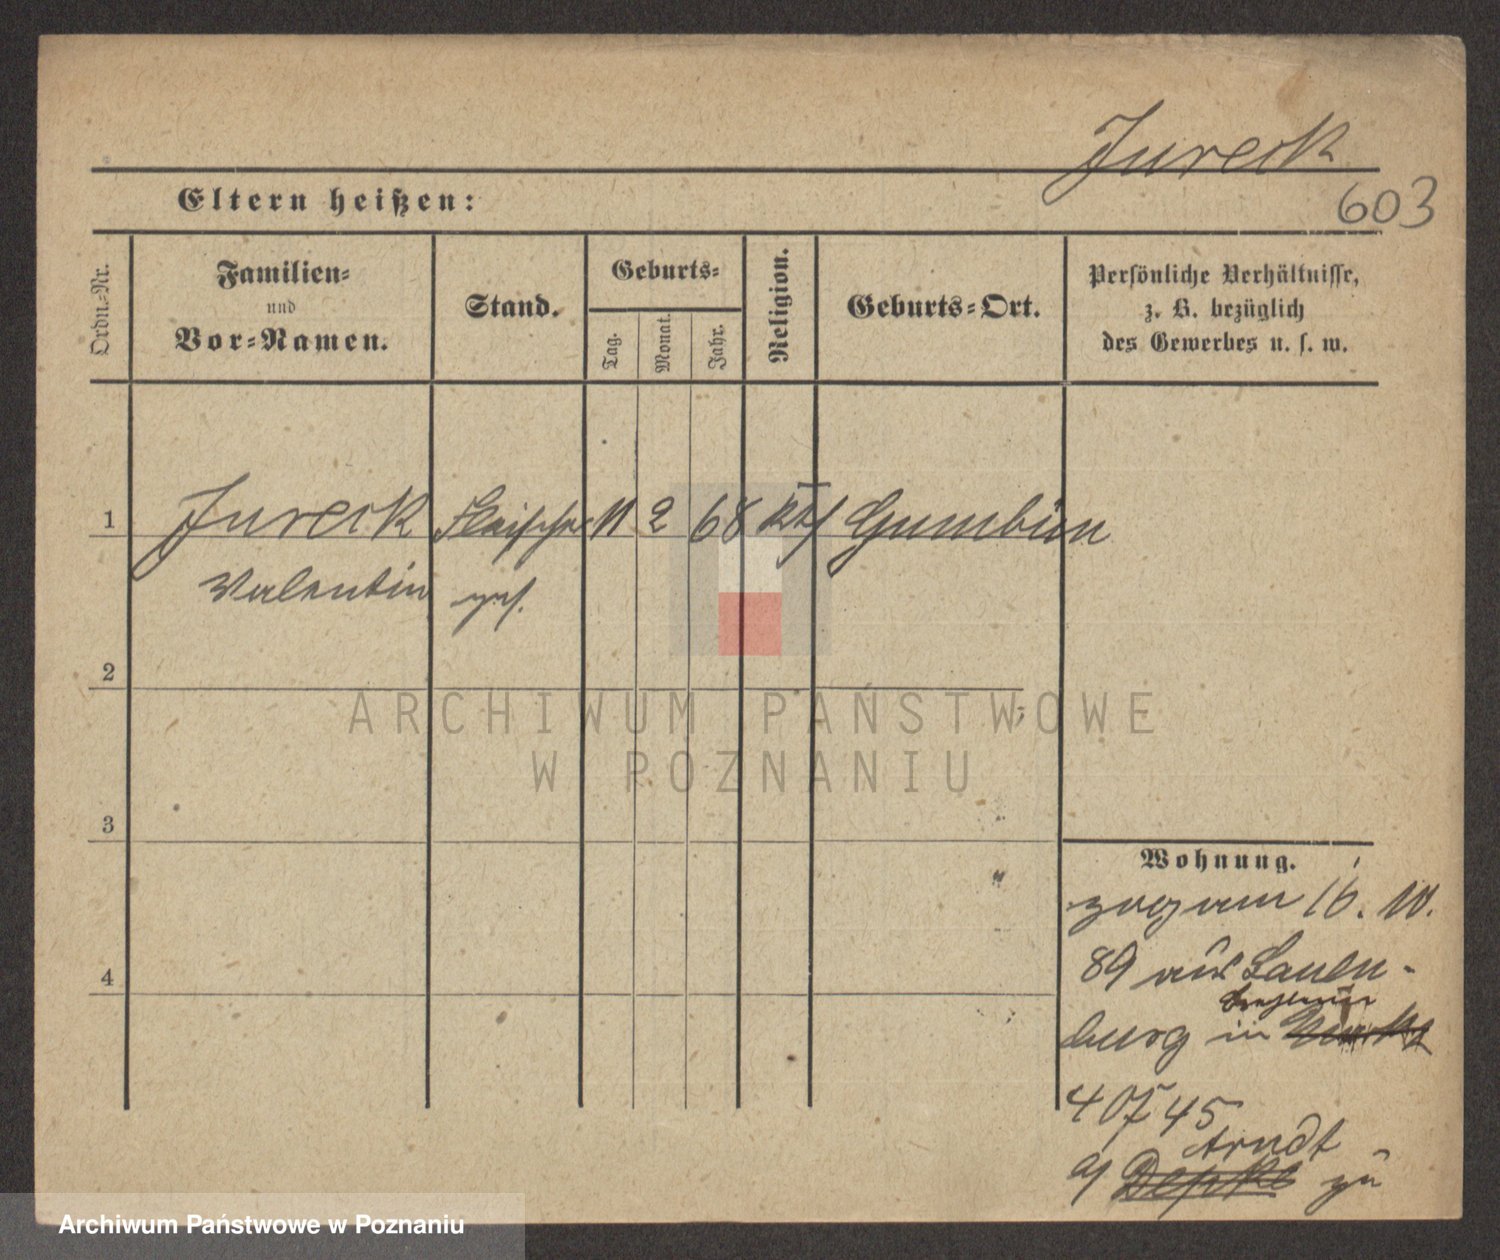 Jureck
603
Eltern heißen:
Ordn.-Nr.
Familien-
und
Vor-Namen.
Stand.
Geburts-
Tag.
Monat.
Jahr.
Religion.
Geburts-Ort.
Persönliche Verhältnisse,
z. B. bezüglich
des Gewerbes u. s. w.
1
Jureck Fleischer 11 2 68 kth Gumbin
Valentin ges.
2
ARCHIWUM PAŃSTWOWE
W POZNANIU
3
Wohnung.
zog am 16. 10.
4
89 aus Lauen-
burg in
45
Arndt
Depke zu
Archiwum Państwowe w Poznaniu